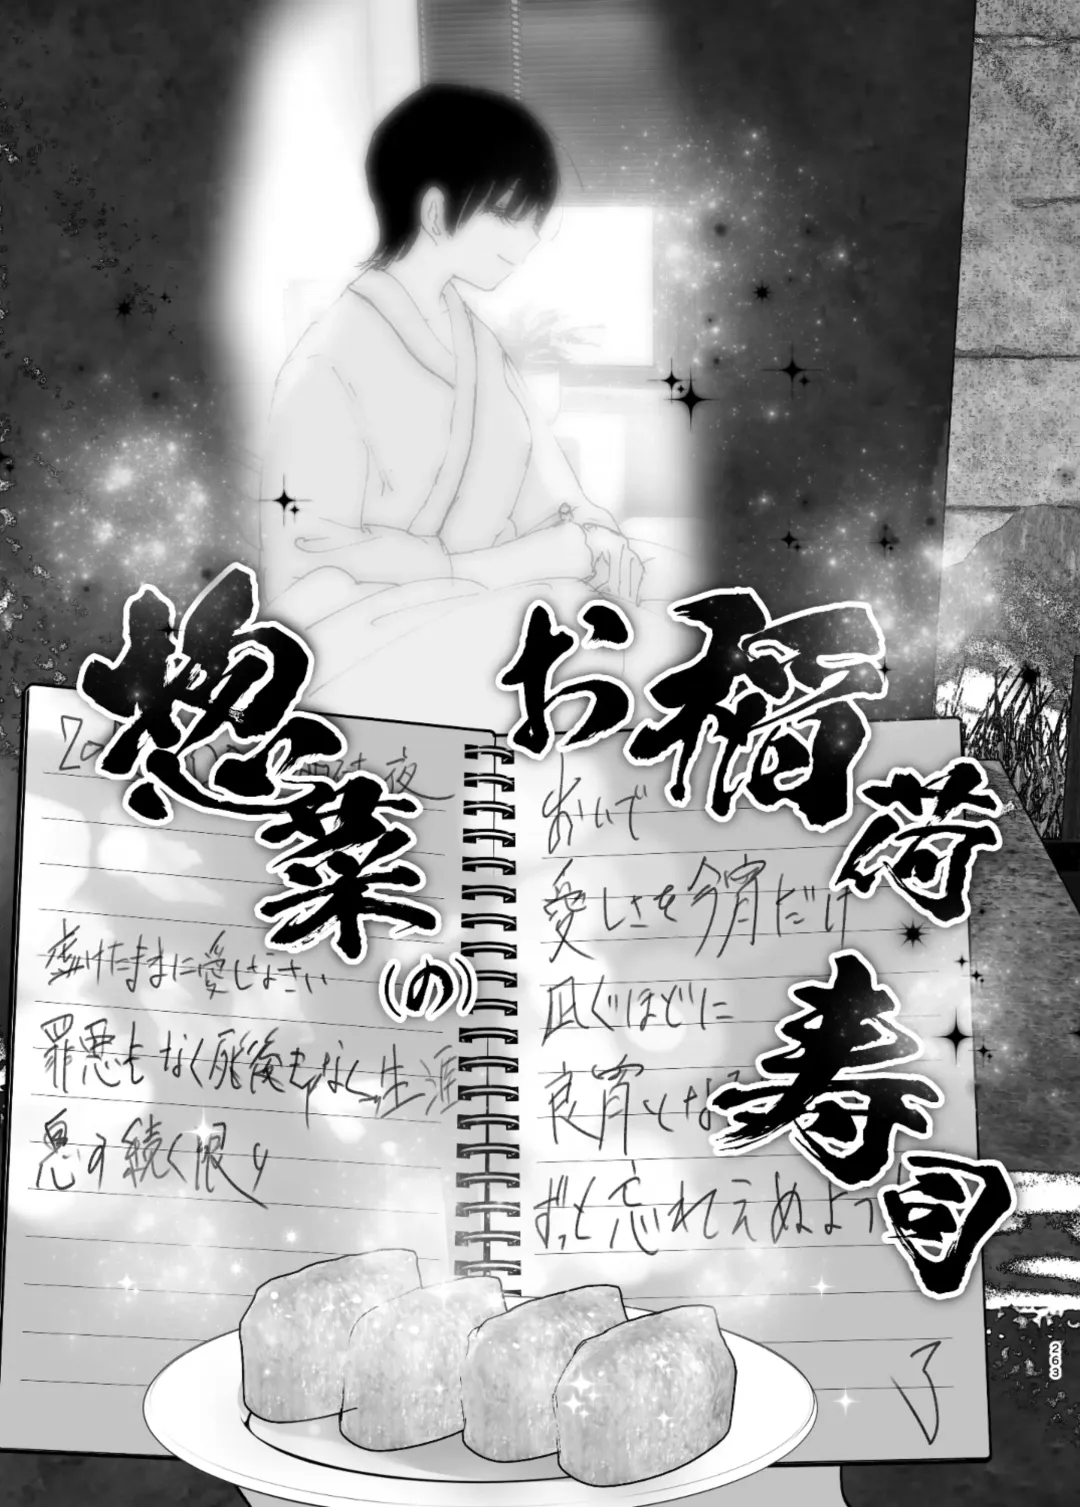 お稲荷寿司
惣菜(の)
虚けたままに愛しなさい
罪悪もなく死後もなく生涯
息の続く限り
おいで
愛しさを今宵だけ
凪ぐほどに
良宵となる
ずっと忘れえぬよう
了
263